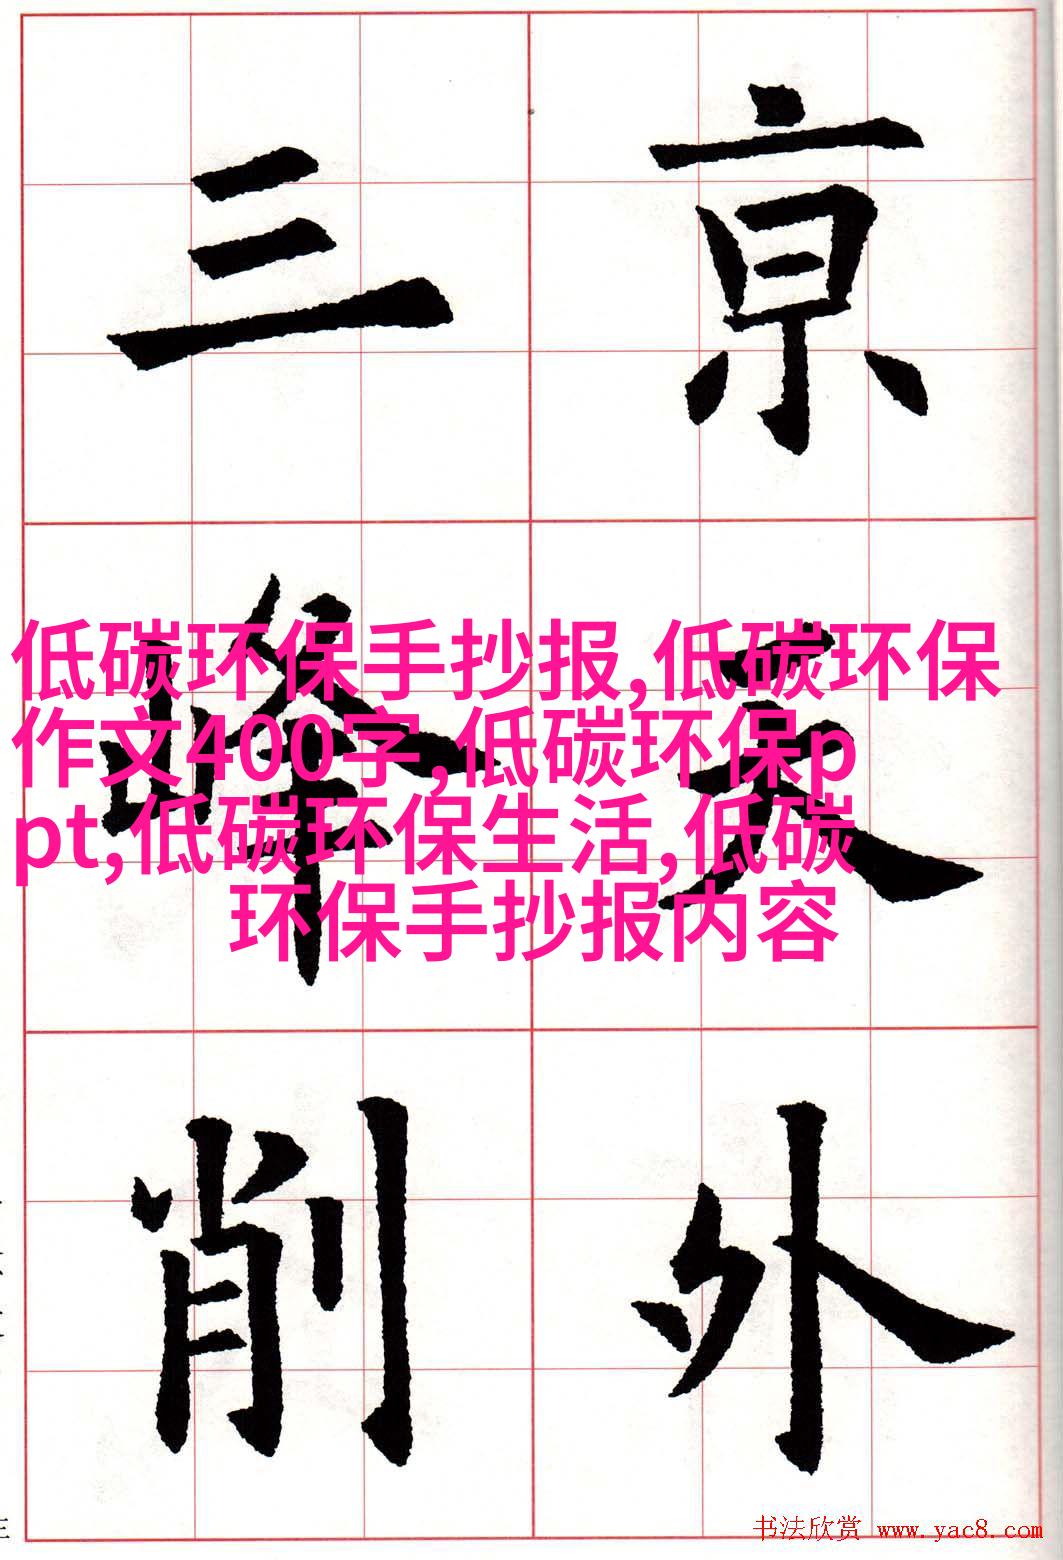 亰天外
三峰削
低碳环保手抄报,低碳环保
作文400字,低碳环保p
pt,低碳环保生活,低碳
环保手抄报内容
书法欣赏 www.yac8.com